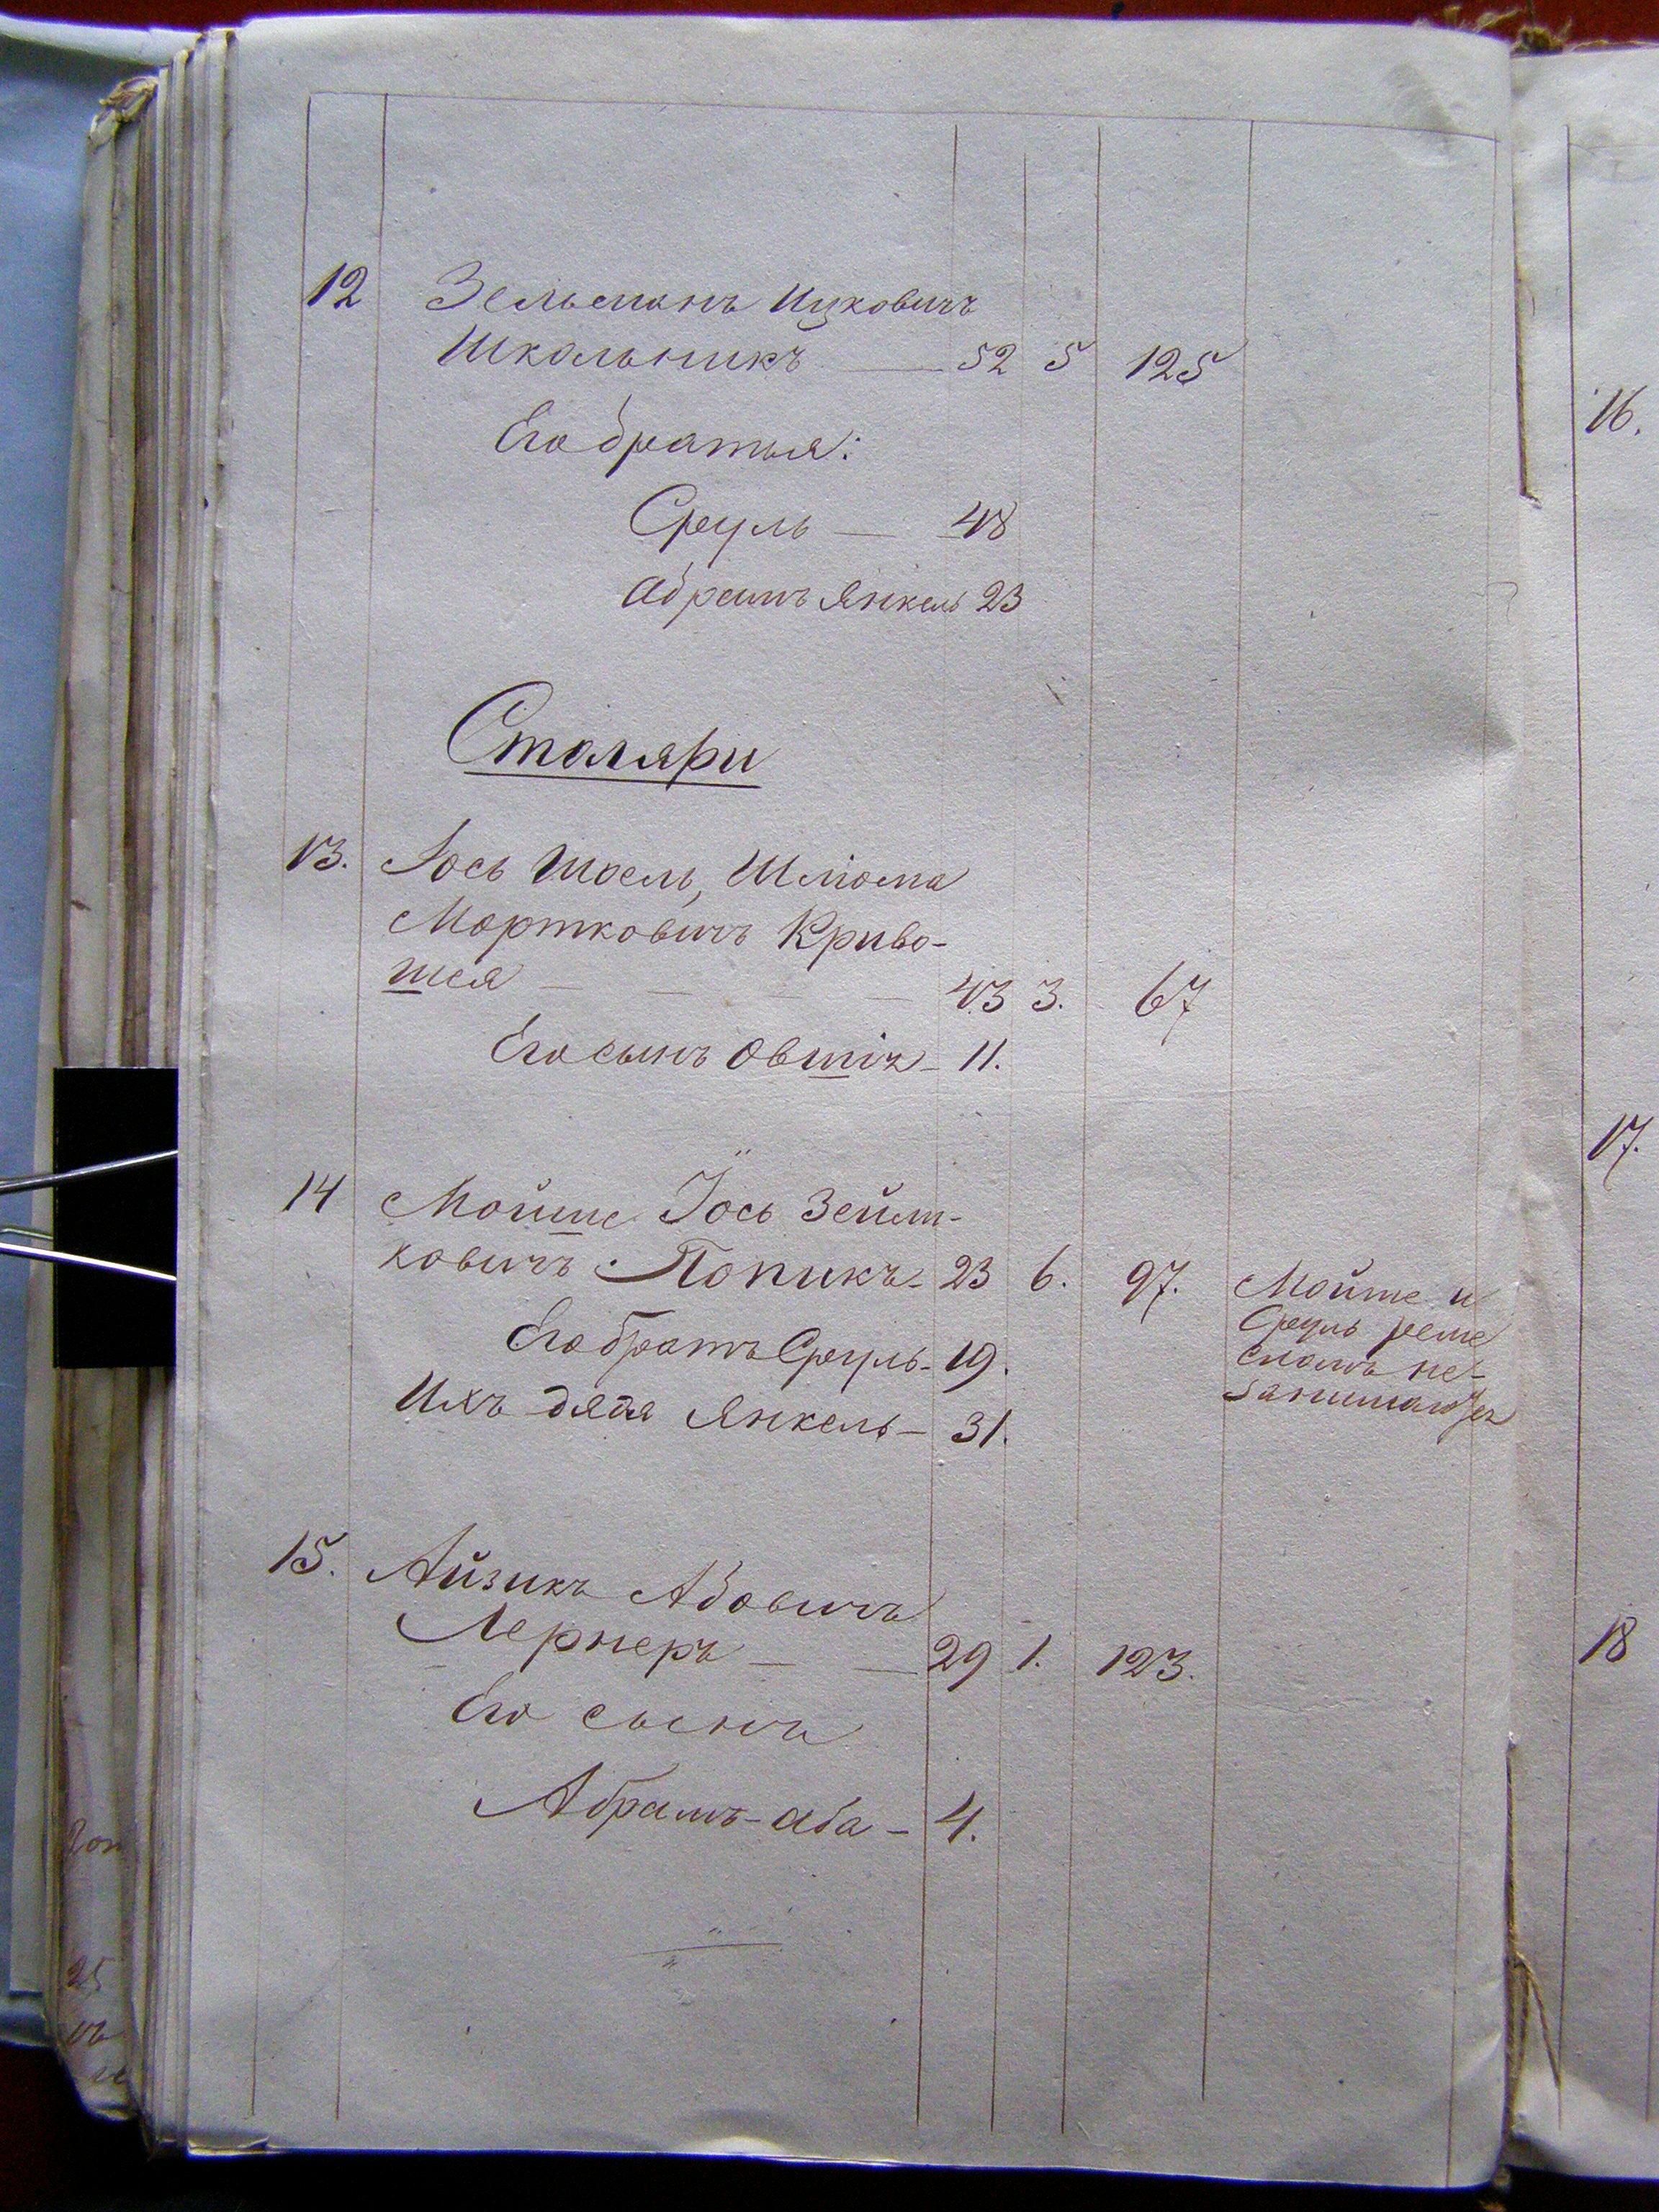 12 Зельманъ Ицковичъ
Школьникъ — 52 5 125
Его братья:
Сруль — 48
Абрамъ Янкель 23
Столяри
13. Іось Шоель, Шліома
Мортковичъ Криво-
шея — — — — 43 3. 67
Его сынъ Овшія — 11.
14 Мойше Іось Зейлт-
ковичъ Попикъ — 23 6. 97.
Его братъ Сруль — 19.
Ихъ дядя Янкель — 31.
Мойше и
Сруль реме
сломъ не-
занимаются
15. Айзикъ Абовичъ
Лернеръ — — 29 1. 123.
Его сынъ
Абрамъ-аба — 4.
16.
17.
18
25